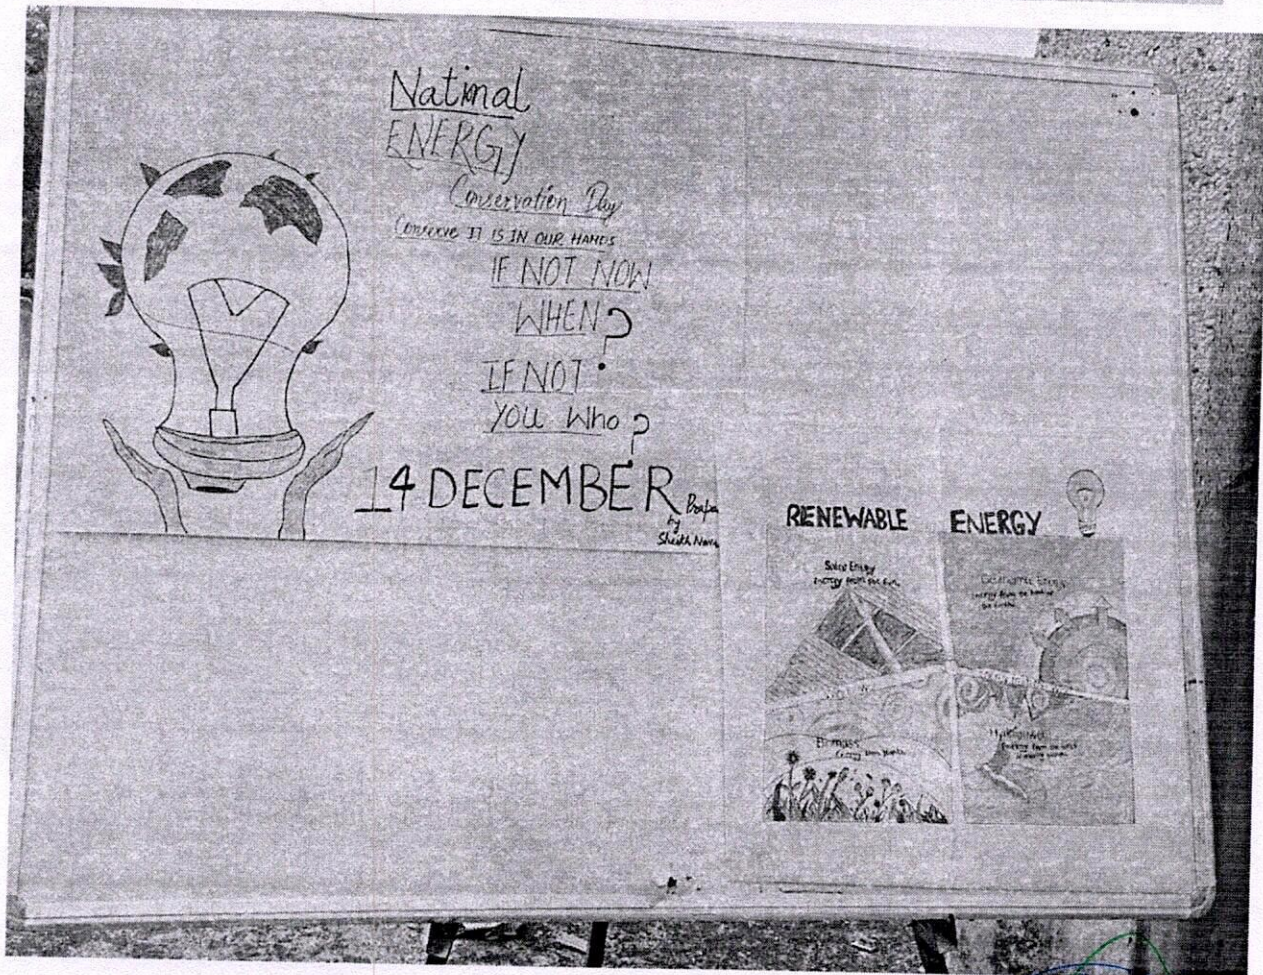 National
ENERGY
Conservation Day
Conserve IT IS IN OUR HANDS
IF NOT NOW
WHEN?
IF NOT
YOU Who?
14 DECEMBER
by
Sheikh
RENEWABLE ENERGY
Solar Energy
Energy from the Sun
Geothermal Energy
Energy from the heat of
the Earth
Biomass
Energy from plants
Energy from